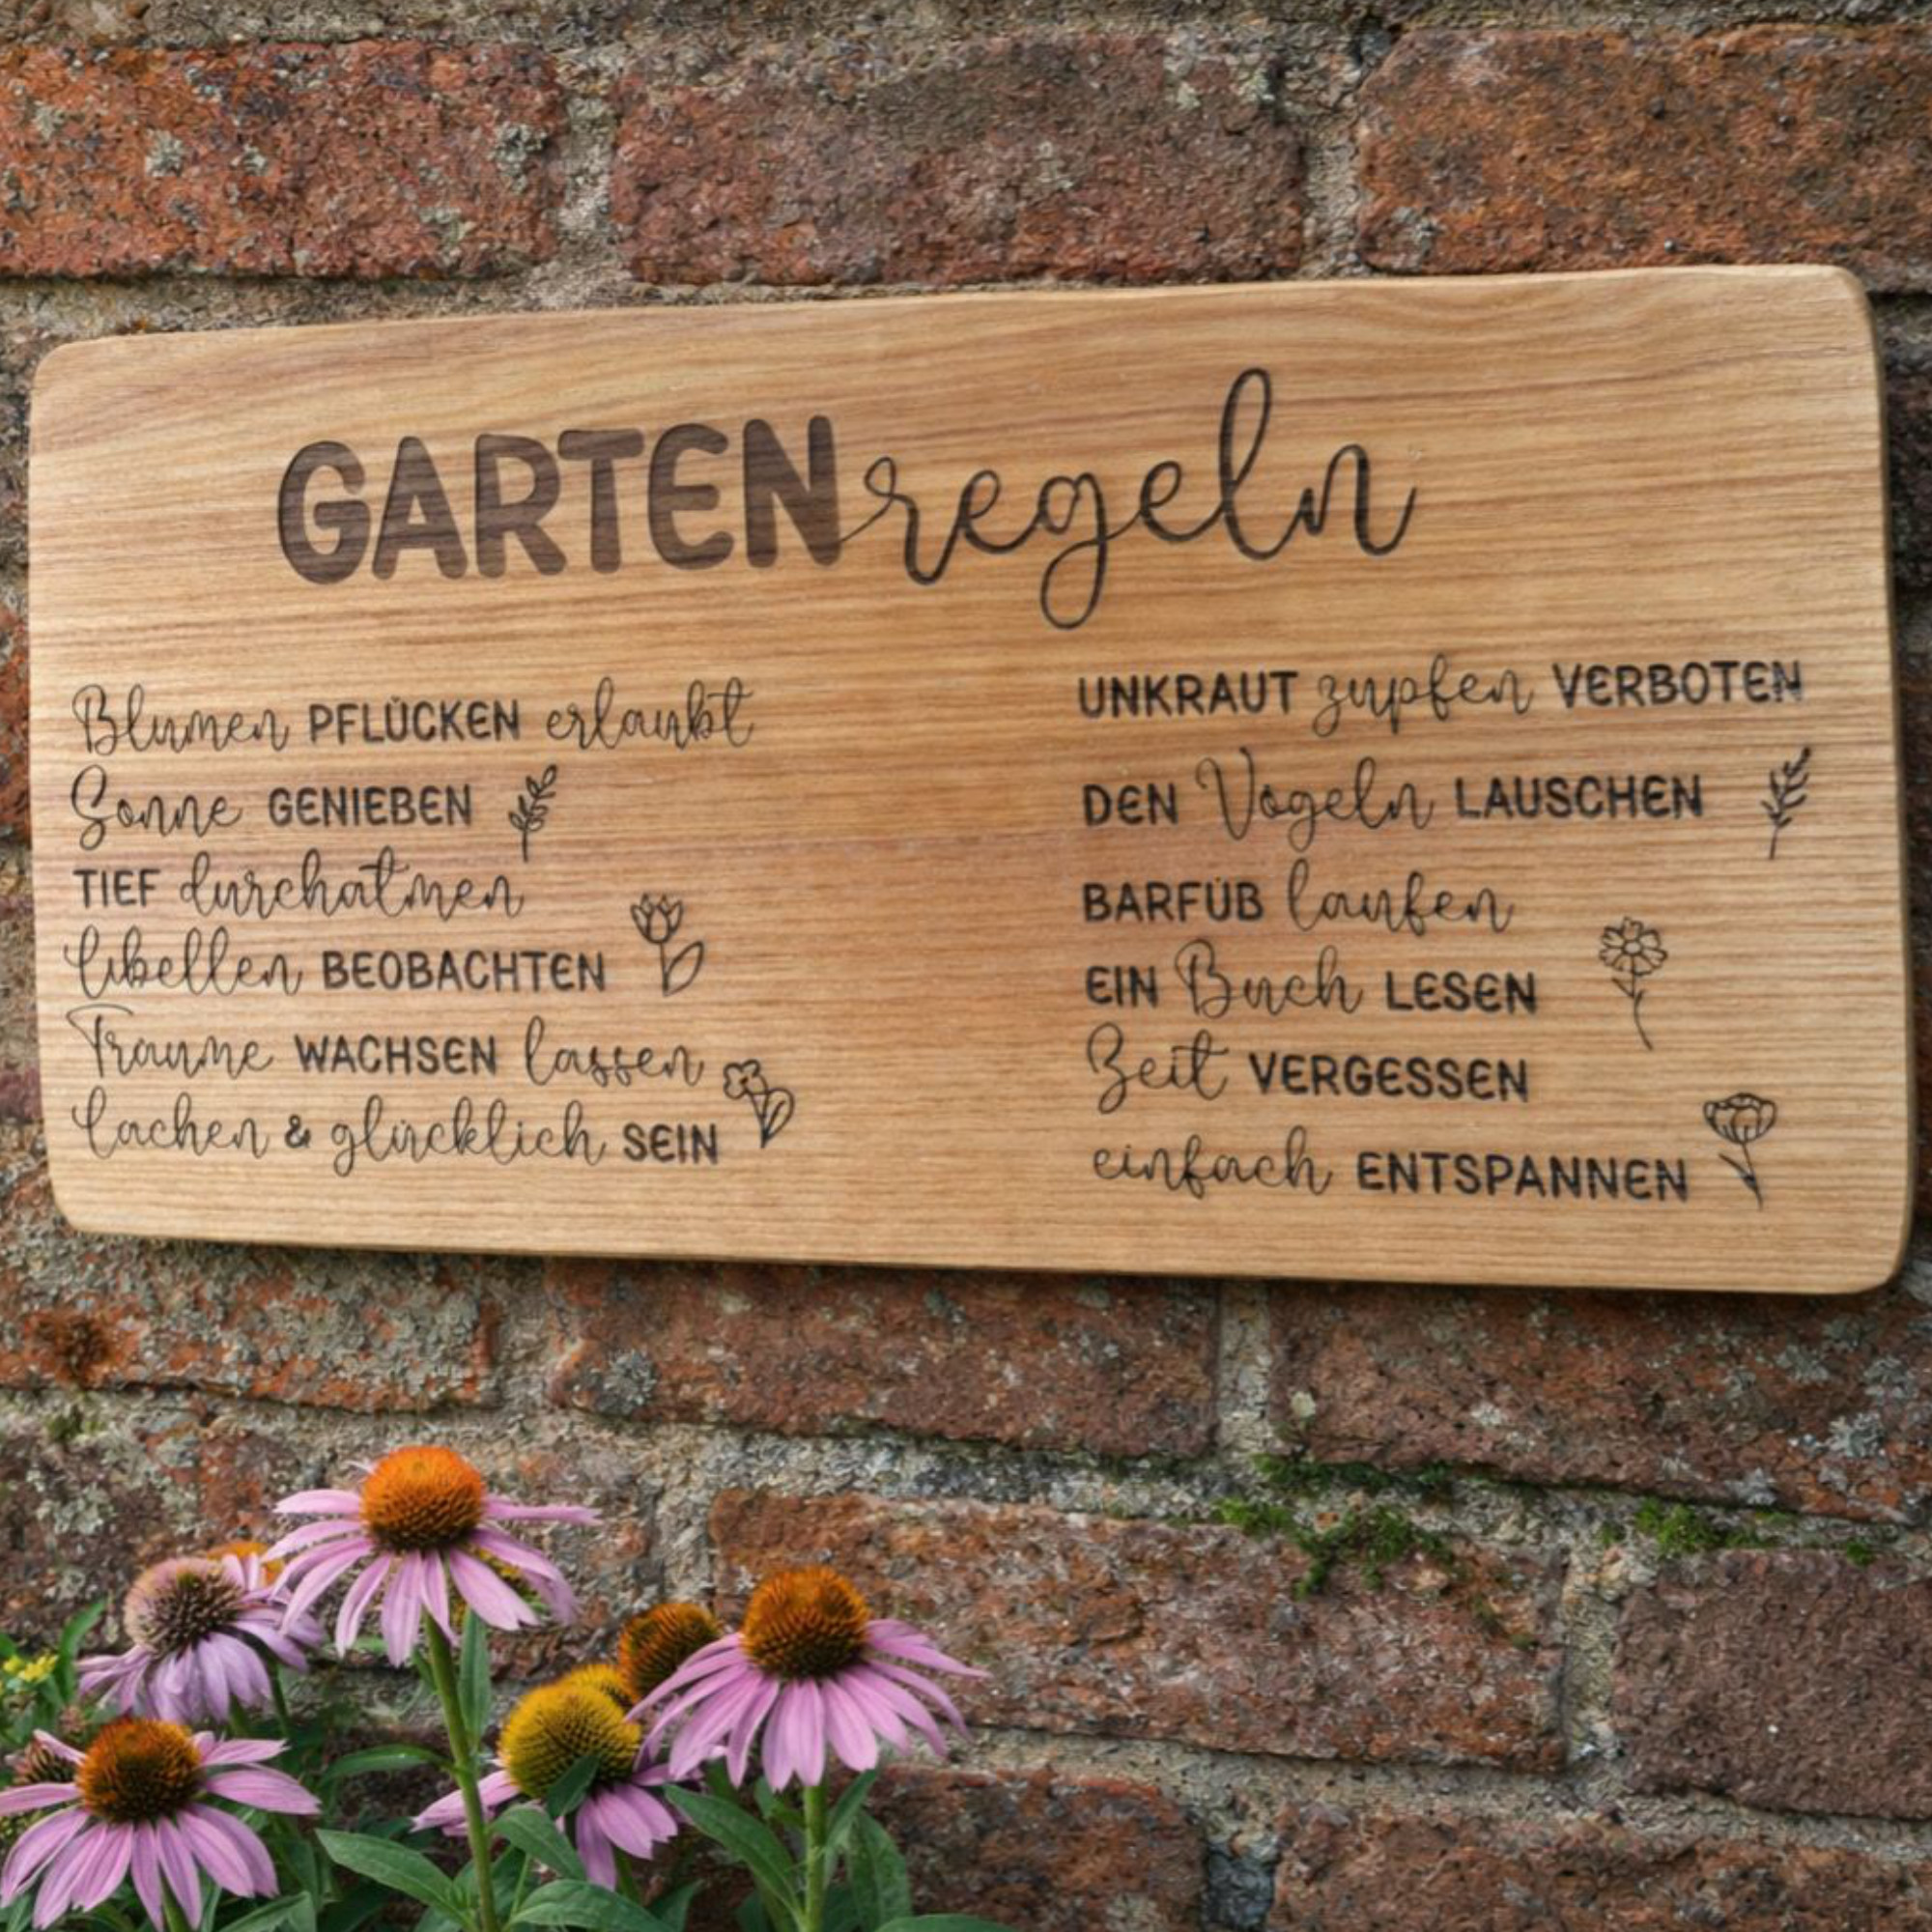 GARTENregeln
Blumen PFLÜCKEN erlaubt
Sonne GENIEßEN
TIEF durchatmen
Libellen BEOBACHTEN
Träume WACHSEN lassen
Lachen & glücklich SEIN
UNKRAUT zupfen VERBOTEN
DEN Vögeln LAUSCHEN
BARFUß laufen
EIN Buch LESEN
Zeit VERGESSEN
einfach ENTSPANNEN